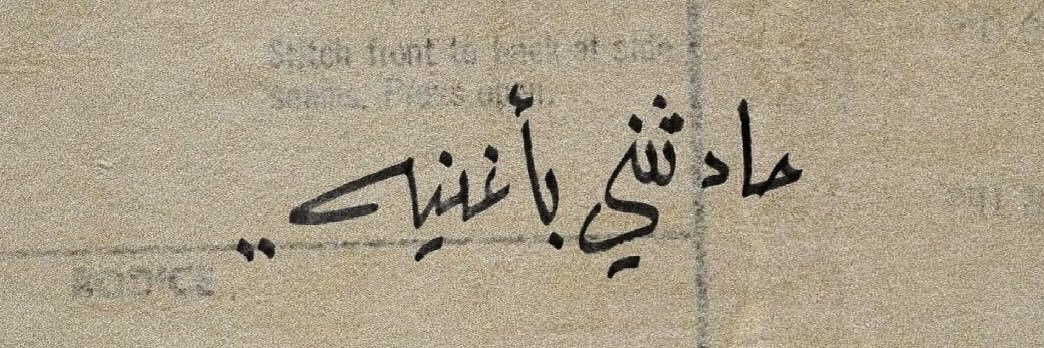 Stitch front to back at side
seams. Press open.
حادثني بأغنيه ..
BODICE